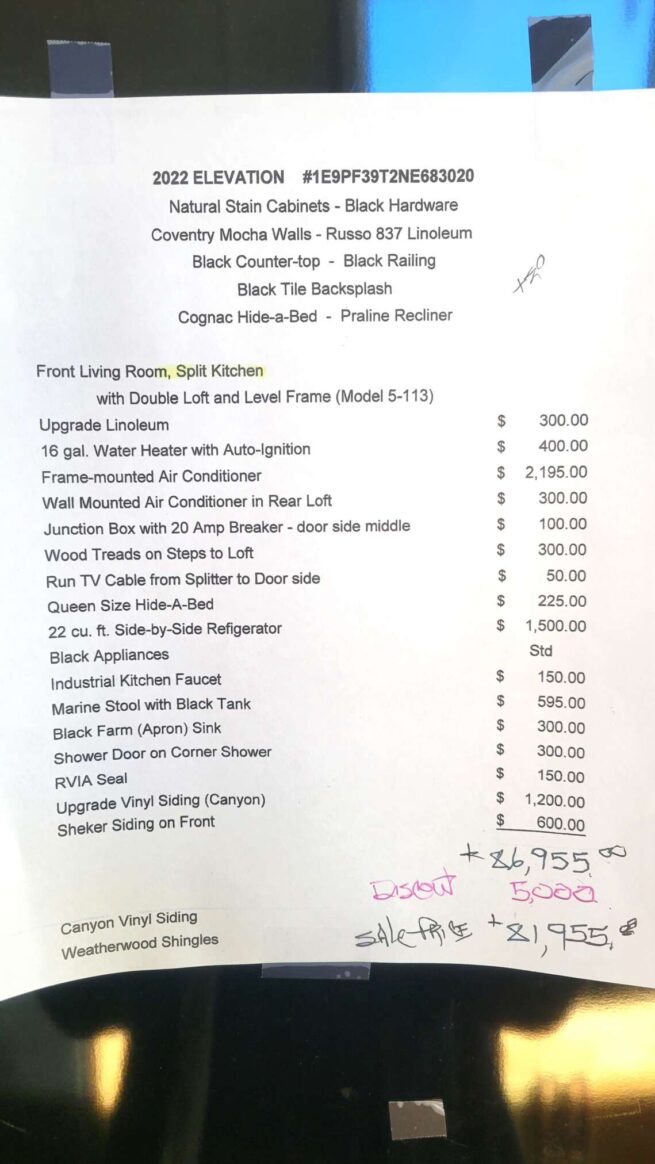 2022 ELEVATION #1E9PF39T2NE683020
Natural Stain Cabinets - Black Hardware
Coventry Mocha Walls - Russo 837 Linoleum
Black Counter-top - Black Railing
Black Tile Backsplash
Cognac Hide-a-Bed - Praline Recliner
Front Living Room, Split Kitchen
with Double Loft and Level Frame (Model 5-113)
Upgrade Linoleum $ 300.00
16 gal. Water Heater with Auto-Ignition $ 400.00
Frame-mounted Air Conditioner $ 2,195.00
Wall Mounted Air Conditioner in Rear Loft $ 300.00
Junction Box with 20 Amp Breaker - door side middle $ 100.00
Wood Treads on Steps to Loft $ 300.00
Run TV Cable from Splitter to Door side $ 50.00
Queen Size Hide-A-Bed $ 225.00
22 cu. ft. Side-by-Side Refigerator $ 1,500.00
Black Appliances Std
Industrial Kitchen Faucet $ 150.00
Marine Stool with Black Tank $ 595.00
Black Farm (Apron) Sink $ 300.00
Shower Door on Corner Shower $ 300.00
RVIA Seal $ 150.00
Upgrade Vinyl Siding (Canyon) $ 1,200.00
Sheker Siding on Front $ 600.00
86,955.00
5,000
Canyon Vinyl Siding
Weatherwood Shingles
SALE PRICE 81,955.